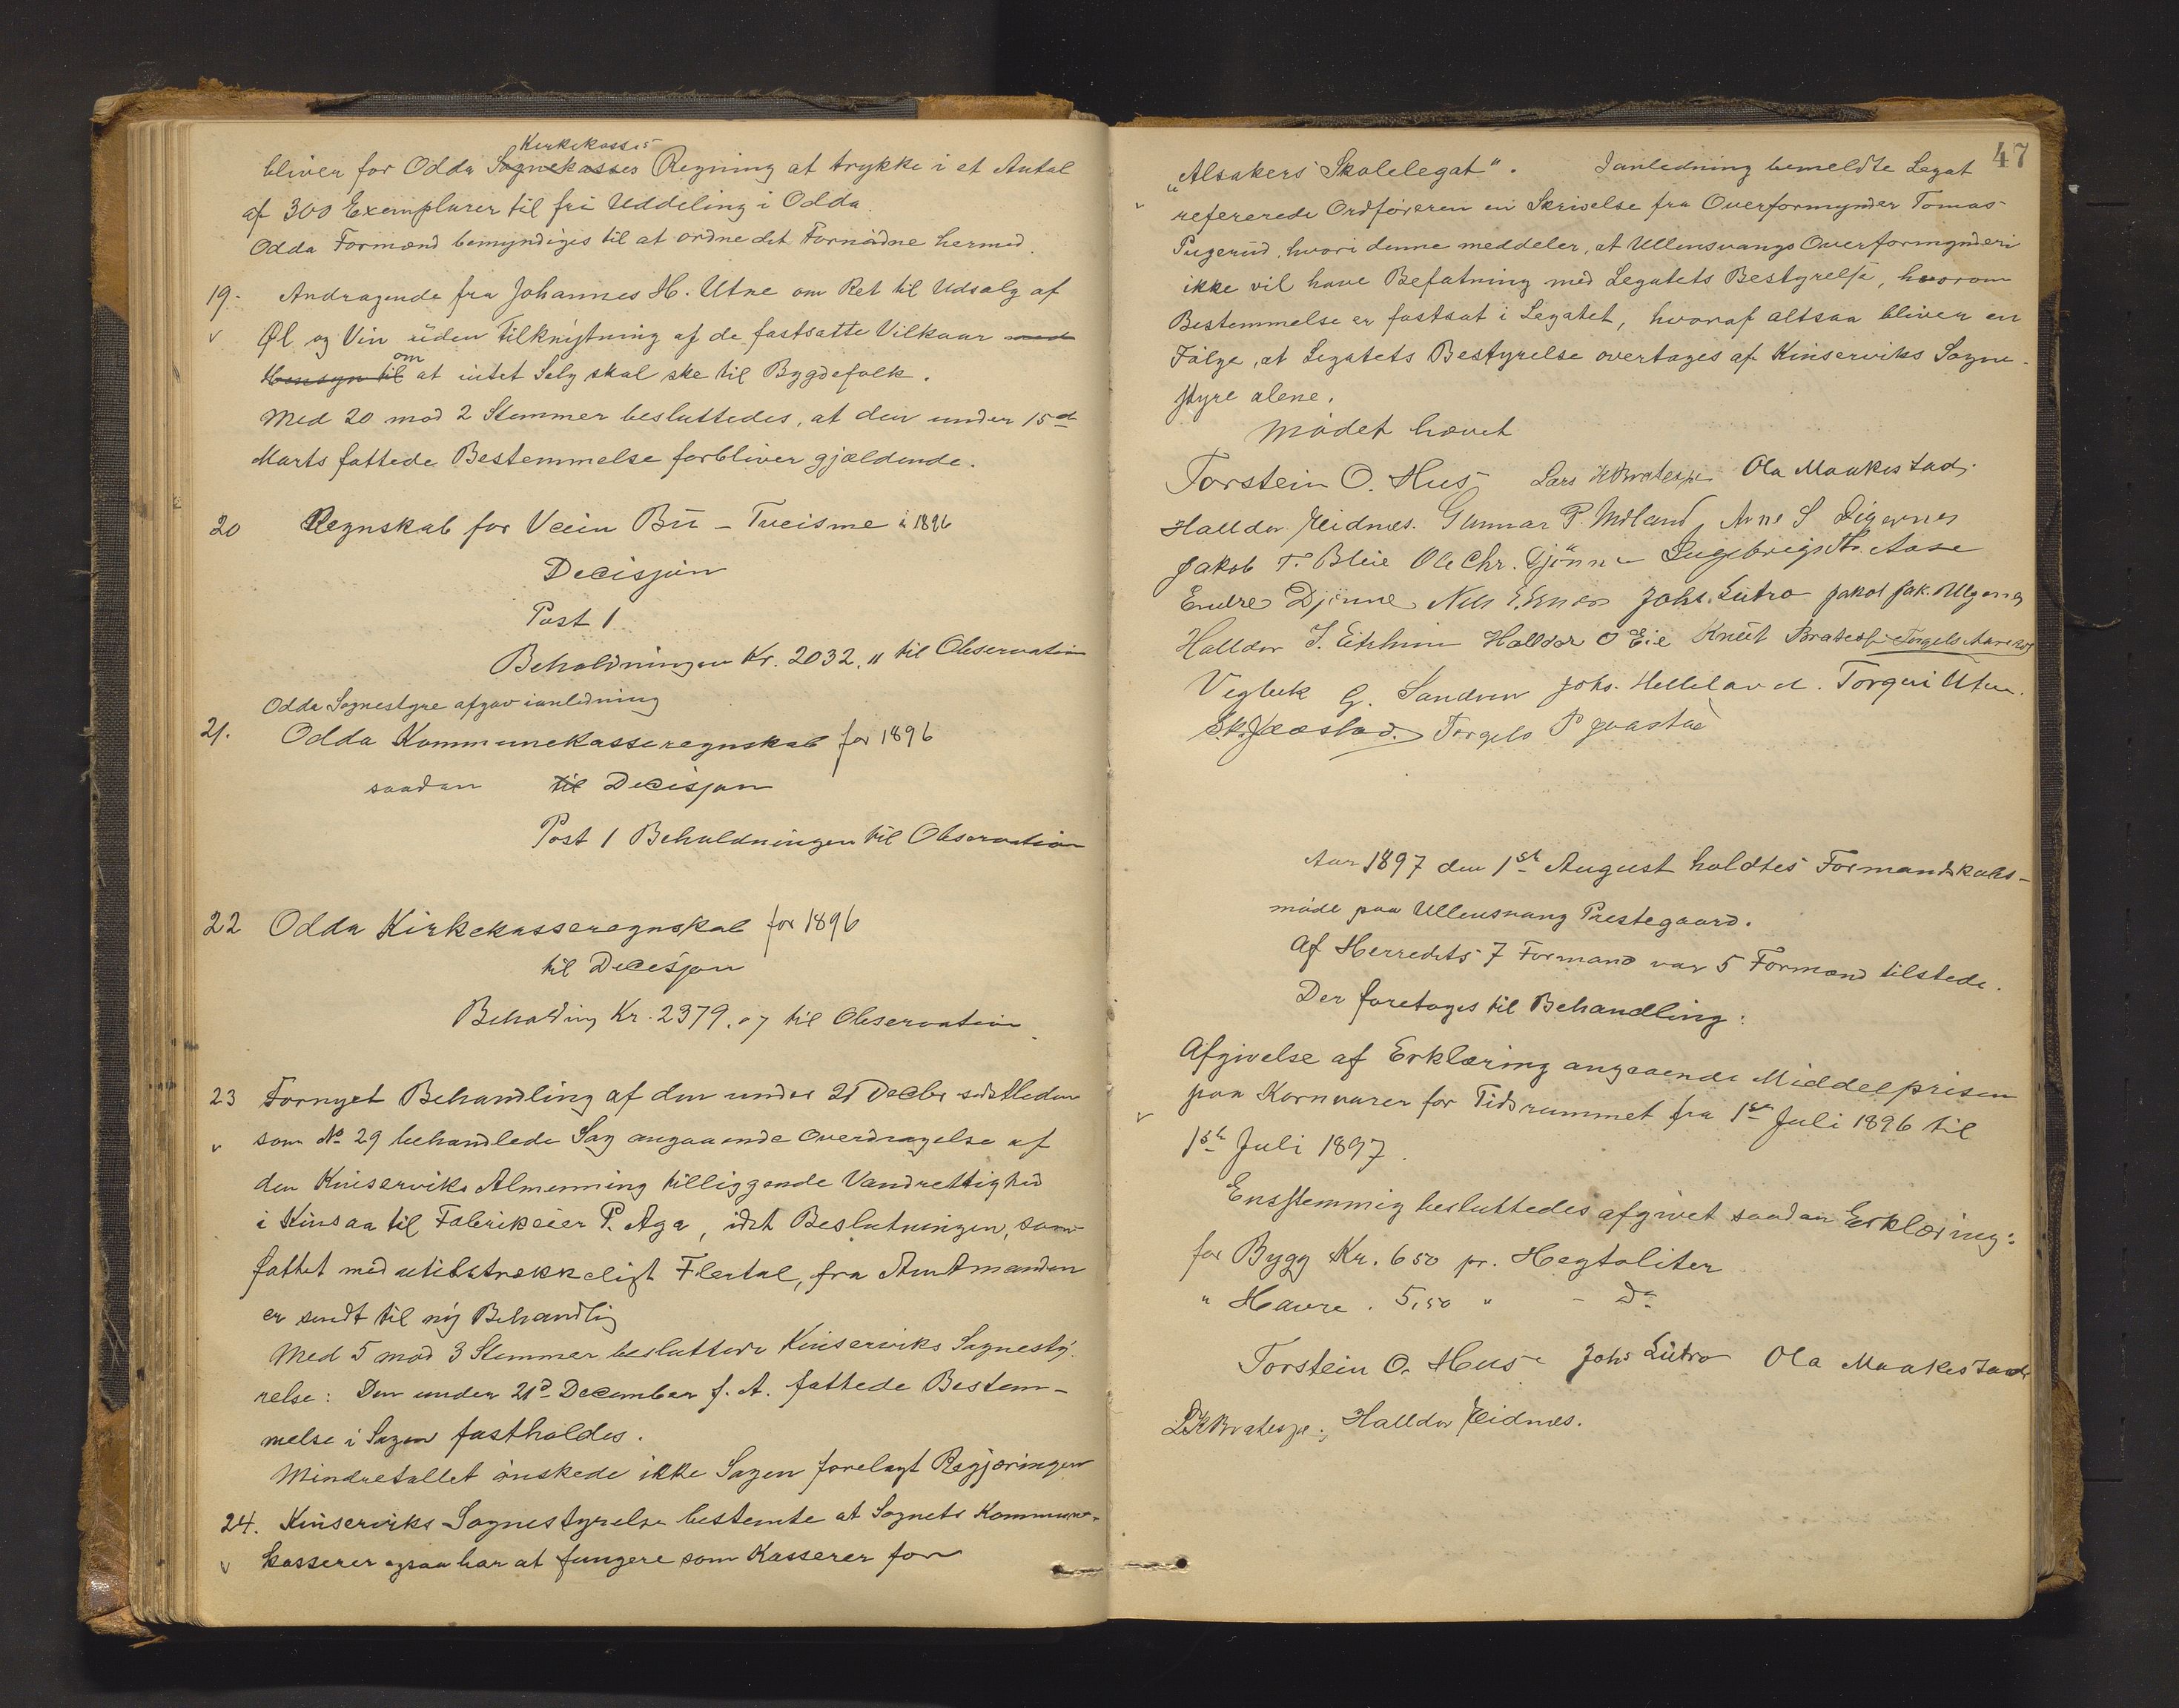 Kirkekasses
bliver for Odda Sognekasses Regning at trykke i et Antal
af 300 Exemplarer til fri Uddeling i Odda.
Odda Formænd bemyndiges til at ordne det Fornødne hermed.
19. Andragende fra Johannes H. Utne om Ret til Udsalg af
v Øl og Vin uden Tilknytning af de fastsatte Vilkaar med
om
Hensyn til at intet Salg skal ske til Bygdefolk.
Med 20 mod 2 Stemmer besluttedes, at den under 15de
Marts fattede Bestemmelse forbliver gjældende.
20 Regnskab for Veien Bu - Tveisme i 1896
Decisjon
Post 1
Beholdningen Kr. 2032, " til Observation
Odda Sognestyre afgav ianledning
21. Odda Kommunekasseregnskab for 1896
saadan til Decisjon
Post 1 Beholdningen til Observation
22 Odda Kirkekasseregnskab for 1896
til Decisjon
Beholdning Kr. 2379.07 til Observation
23 Fornyet Behandling af den under 21 Decbr sidstleden
v som No 29 behandlede Sag angaaende Overdragelse af
den Kinserviks Almenning tilliggende Vandrettighed
i Kinsaa til Fabrikeier P. Aga, idet Beslutningen, som
fattet med utilstrækkeligt Flertal, fra Amtmanden
er sendt til ny Behandlig
Med 5 mod 3 Stemmer besluttede Kinserviks Sognesty-
relse: Den under 21d December f. A. fattede Bestem-
melse i Sagen fastholdes.
Mindretallet ønskede ikke Sagen forelagt Regjeringen
24. Kinserviks Sognestyrelse bestemte at Sognets Kommune-
v kasserer ogsaa har at fungere som Kasserer for
47
"Alsakers Skolelegat". Ianledning bemeldte Legat
v refererede Ordføreren en Skrivelse fra Overformynder Tomas
Pugerud, hvori denne meddeler, at Ullensvangs Overformynderi
ikke vil have Befatning med Legatets Bestyrelse, hvorom
Bestemmelse er fastsat i Legatet, hvoraf altsaa bliver en
Følge, at Legatets Bestyrelse overtages af Kinserviks Sogne-
styre alene.
Mødet hævet
Torstein O. Hus Lars K Bratespe Ola Maakestad.
Halldor Eidnes. Gunnar P. Midland, Arne S Digernes
Jakob T. Bleie Ole Chr. Djønne Ingebrigt Th. Aase
Endre Djønne Nils Johs. Lutro Jakob Jak.
Halldor J. Eitrheim Halldor O Eie Knut Bratespe Torgels
Vegleik G. Sandven Johs. Helleland. Torgeir Utne.
Torgels P
Aar 1897 den 1ste August holdtes Formandskabs-
møde paa Ullensvang Prestegaard.
Af Herredets 7 Formænd var 5 Formænd tilstede.
Der foretoges til Behandling:
Afgivelse af Erklæring angaaende Middelprisen
v paa Kornvarer for Tidsrummet fra 1ste Juli 1896 til
1ste Juli 1897.
Enstemmig besluttedes afgivet saadan Erklæring:
for Bygg Kr. 6 50 pr. Hegtoliter
" Havre . 5,50 " - Do
Torstein O. Hus Johs Lutro Ola Maakestad
L K Bratespe., Halldor Eidnes.